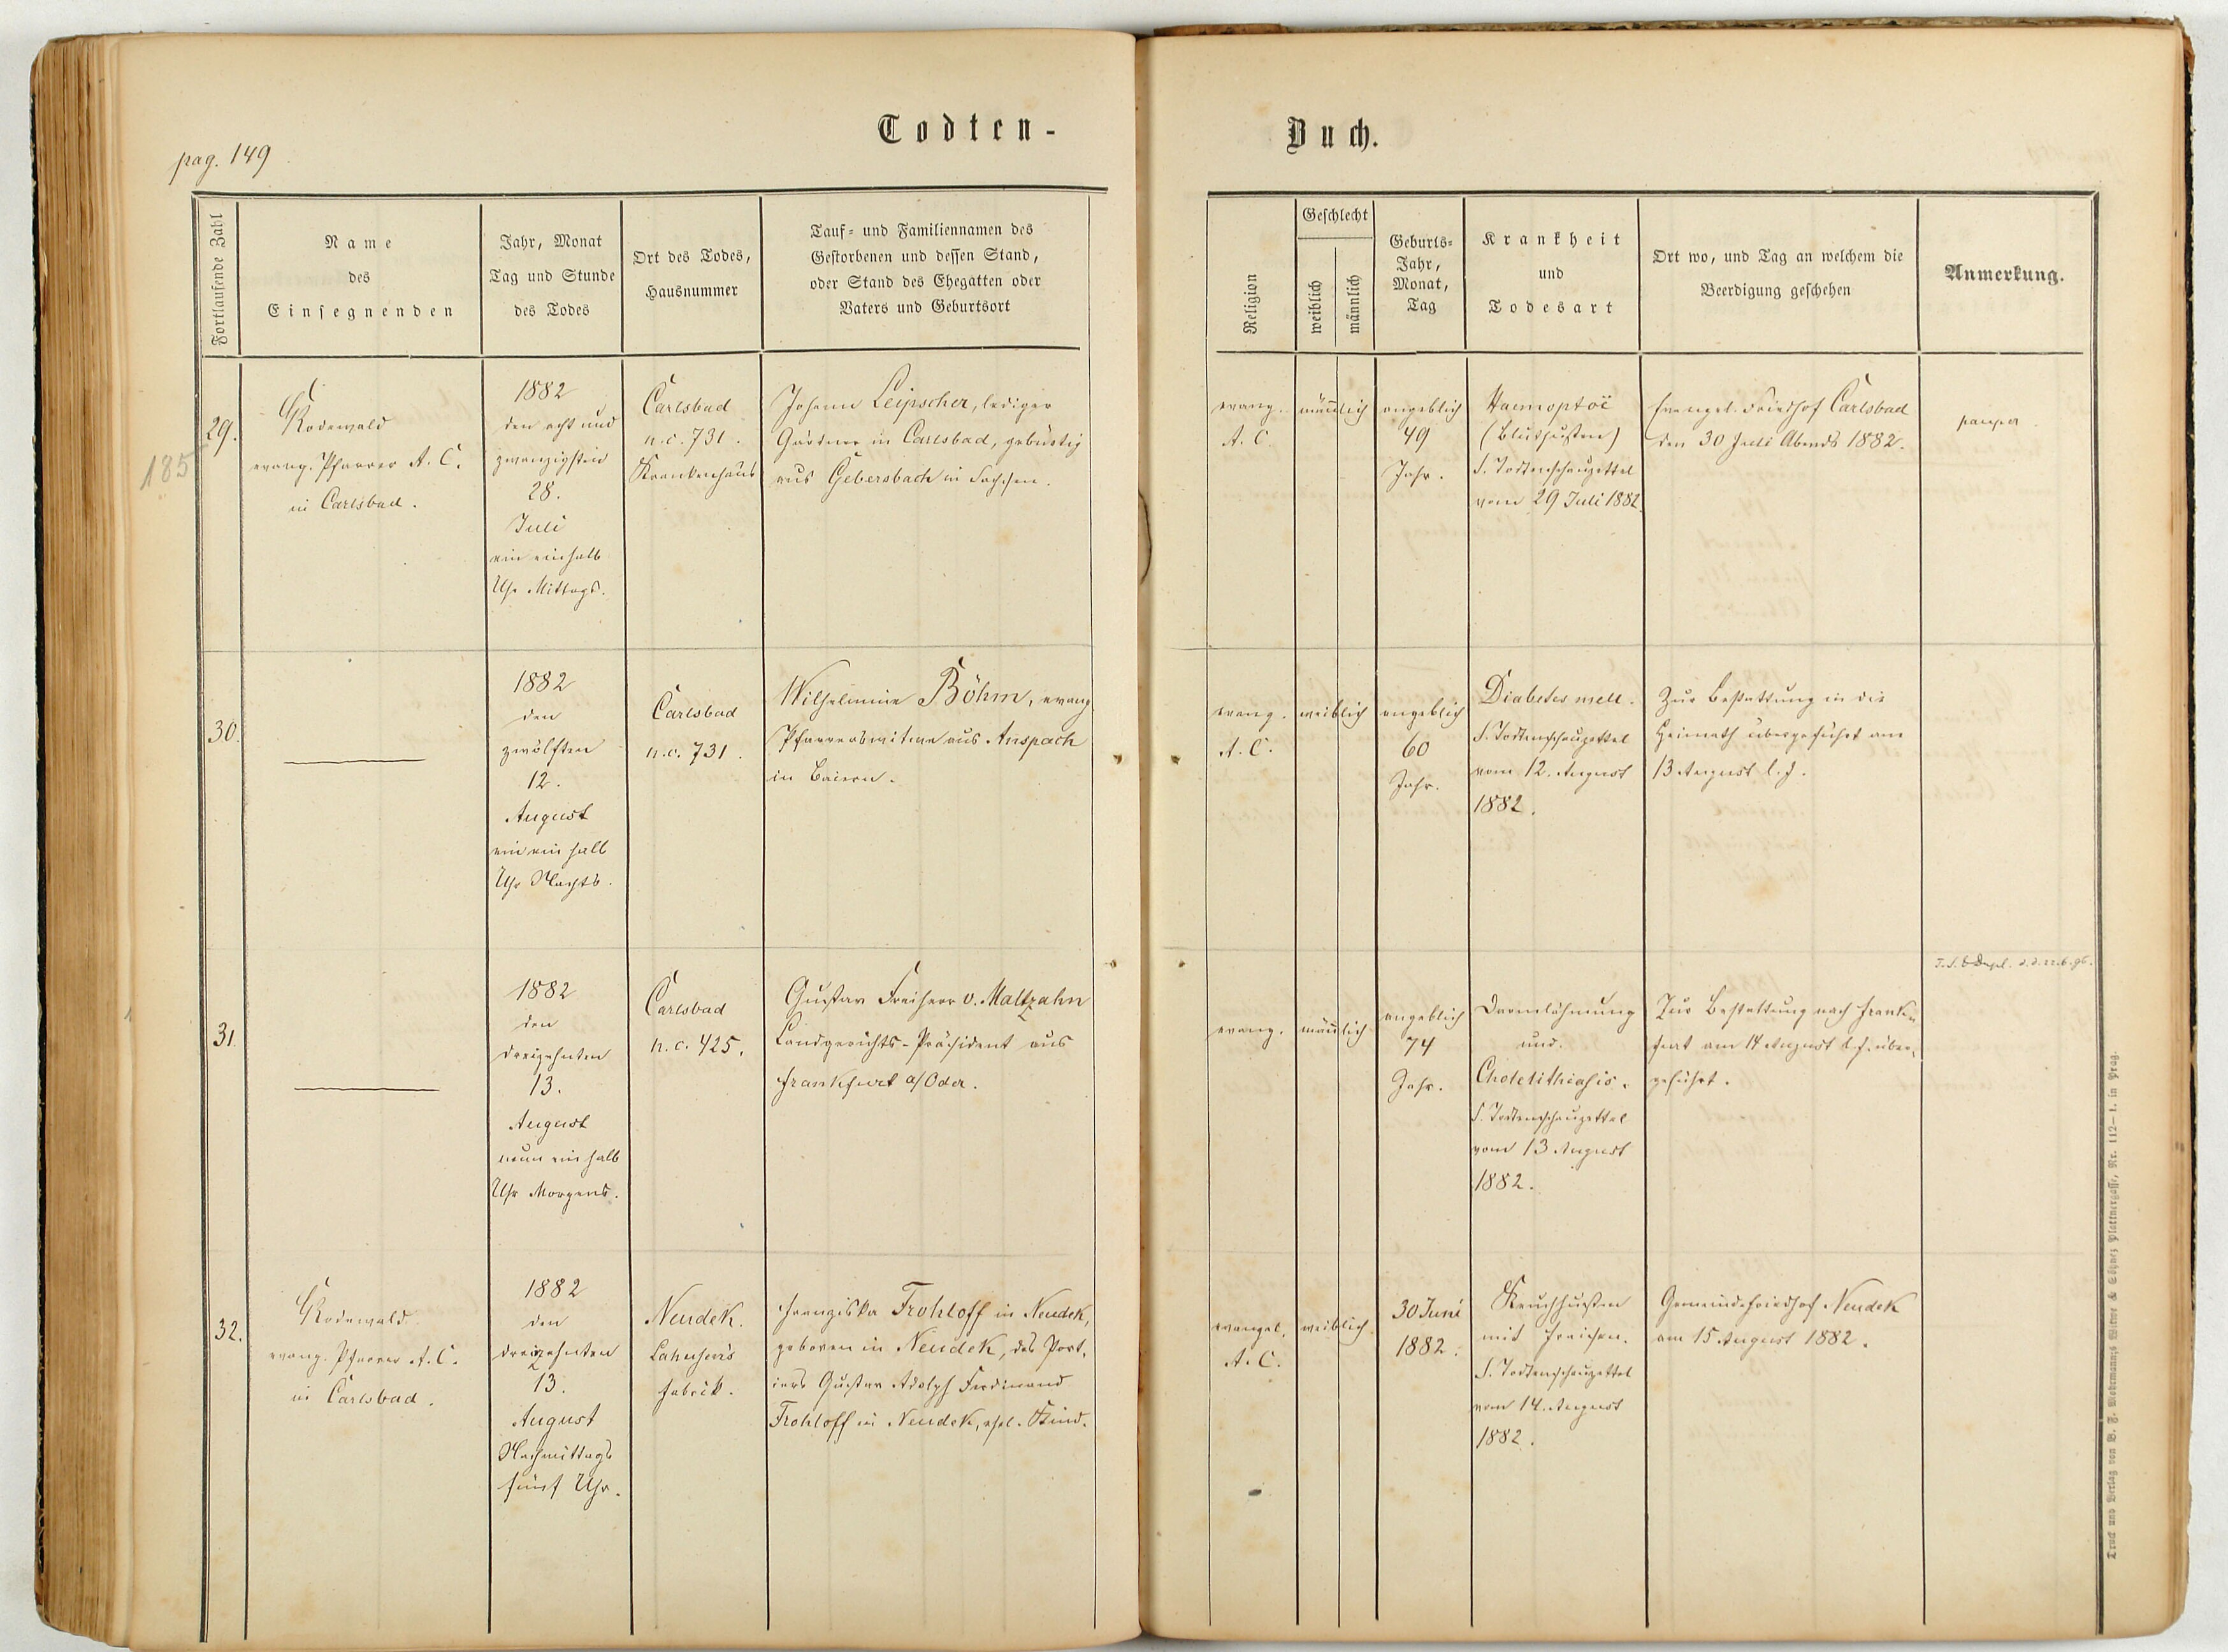 Todten-
Buch.
pag. 149
Fortlaufende Zahl
Name
des
Einsegnenden
Jahr, Monat
Tag und Stunde
des Todes
Ort des Todes,
Hausnummer
Tauf- und Familiennamen des
Gestorbenen und dessen Stand,
oder Stand des Ehegatten oder
Vaters und Geburtsort
Religion
Geschlecht
weiblich
männlich
Geburts-
Jahr,
Monat,
Tag
Krankheit
und
Todesart
Ort wo, und Tag an welchem die
Beerdigung geschehen
Anmerkung.
185
29.
Rodewald
evang. Pfarrer A. C.
in Carlsbad.
1882
den acht und
zwanzigsten
28.
Juli
ein einhalb
Uhr Mittags.
Carlsbad
n. c. 731.
Krankenhaus
Johann Leipscher, lediger
Gärtner in Carlsbad, gebürtig
aus Gebersbach in Sachsen.
evang.
A. C.
männlich
angeblich
49
Jahr.
Haemoptoë
(Bluthusten)
s. Todtenschauzettel
vom 29 Juli 1882.
Evangel. Friedhof Carlsbad
den 30 Juli Abends 1882.
pauper.
30.
1882
den
zwölften
12.
August
ein ein halb
Uhr Nachts.
Carlsbad
n. c. 731.
Wilhelmine Böhm, evang.
Pfarrerswitwe aus Anspach
in Baiern.
evang.
A. C.
weiblich
angeblich
60
Jahr.
Diabetes mell.
s. Todtenschauzettel
vom 12. August
1882.
Zur Bestattung in die
Heimath übergeführt am
13 August l. J.
31
1882
den
dreizehnten
13.
August
neun ein halb
Uhr Morgens.
Carlsbad
n. c. 425.
Gustav Freiherr v. Maltzahn
Landgerichts-Präsident aus
Frankfurt a/Oder.
evang.
männlich
angeblich
74
Jahr.
Darmlähmung
und
Cholelithiasis.
s. Todtenschauzettel
vom 13 August
1882.
Zur Bestattung nach Frank-
furt am 14 August l. J. über-
geführt.
32.
Rodewald
evang. Pfarrer A. C.
in Carlsbad.
1882
den
dreizehnten
13.
August
Nachmittags
fünf Uhr.
Neudek.
fabrik.
Franziska Frohloff in Neudek,
geboren in Neudek, des Port-
iers Gustav Adolph Ferdinand
Frohloff in Neudek, ehel. Kind.
evangel.
A. C.
weiblich
30 Juni
1882.
Keuchhusten
mit Fraisen.
s. Todtenschauzettel
vom 14. August
1882.
Gemeindefriedhof Neudek
am 15 August 1882.